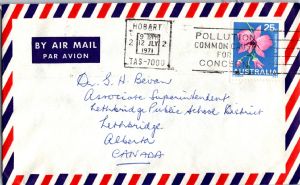 HOBART
9 - PM
12 JLY
1971
TAS-7000
2
2
POLLUTION
COMMON C
FOR
CONCE
25c
AUSTRALIA
BY AIR MAIL
PAR AVION
Dr. G. H. Bevan
Associate Superintendent
Lethbridge Public School District
Lethbridge
Alberta
CANADA